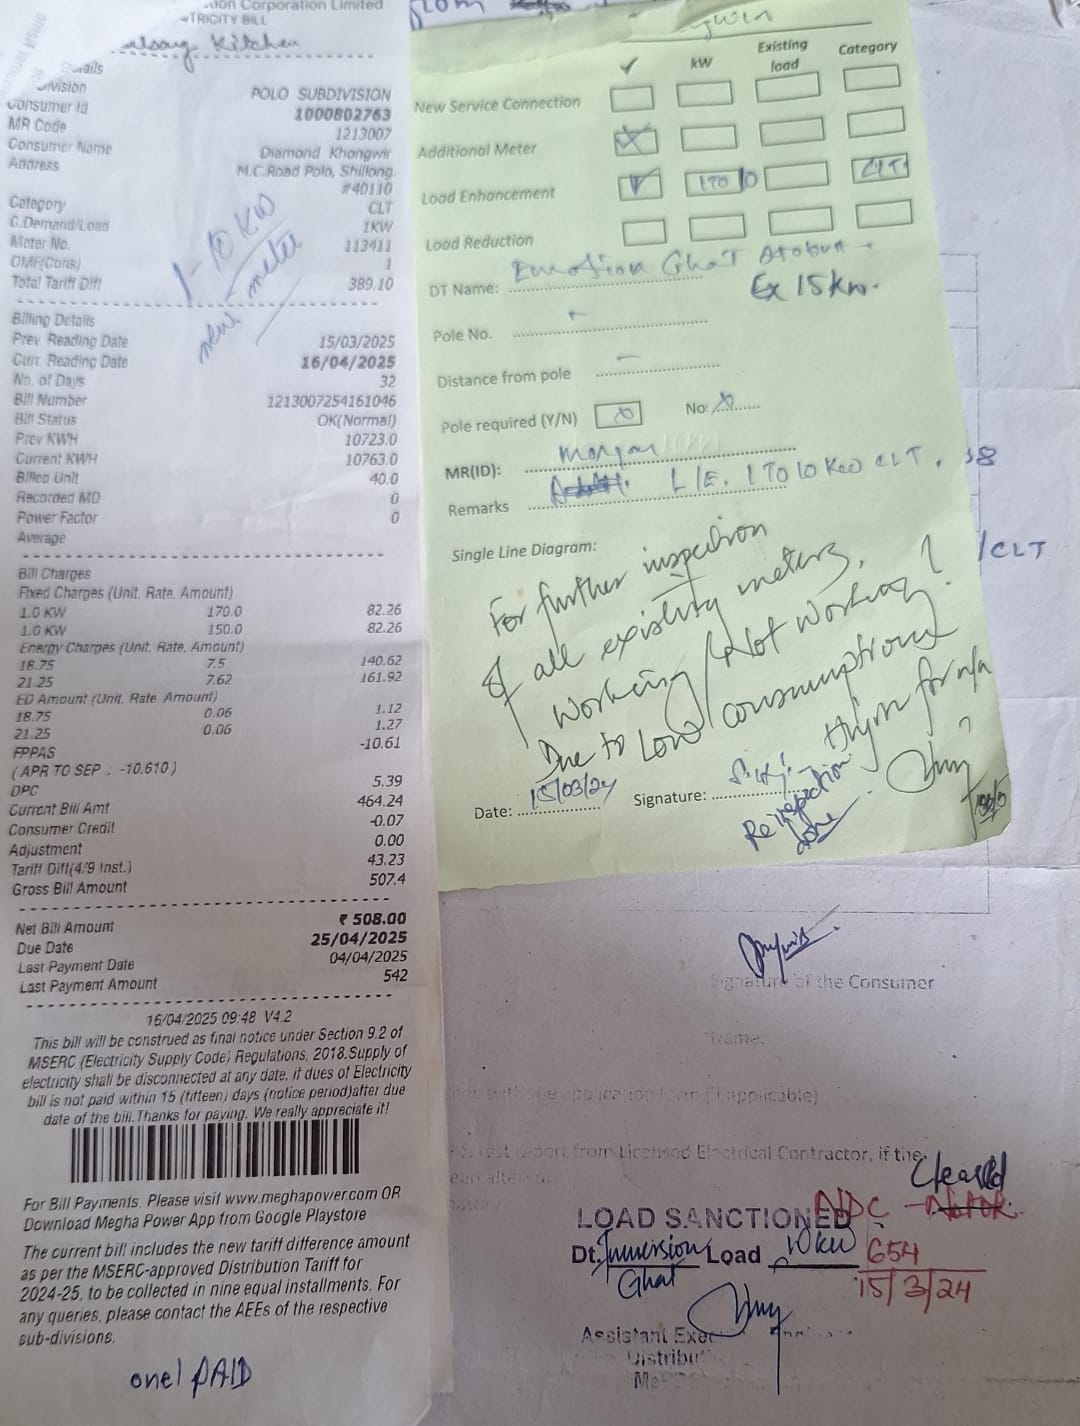 Corporation Limited
TRICITY BILL
Kitchen
Division POLO SUBDIVISION
Consumer Id 1000802763
MR Code 1213007
Consumer Name Diamond Khongwir
Address M.C.Road Polo, Shillong.
#40110
Category CLT
C.Demand/Load 1KW
Meter No. 113411
OMF(Cons) 1
Total Tariff Diff 389.10
1-10 KW
new meter
Billing Details
Prev Reading Date 15/03/2025
Curr. Reading Date 16/04/2025
No. of Days 32
Bill Number 1213007254161046
Bill Status OK(Normal)
Prev KWH 10723.0
Current KWH 10763.0
Billed Unit 40.0
Recorded MD 0
Power Factor 0
Average
Bill Charges
Fixed Charges (Unit, Rate, Amount)
1.0 KW 170.0 82.26
1.0 KW 150.0 82.26
Energy Charges (Unit, Rate, Amount)
18.75 7.5 140.62
21.25 7.62 161.92
ED Amount (Unit, Rate, Amount)
18.75 0.06 1.12
21.25 0.06 1.27
FPPAS -10.61
( APR TO SEP : -10.610 )
DPC 5.39
Current Bill Amt 464.24
Consumer Credit -0.07
Adjustment 0.00
Tariff Diff(4/9 Inst.) 43.23
Gross Bill Amount 507.4
Net Bill Amount ₹ 508.00
Due Date 25/04/2025
Last Payment Date 04/04/2025
Last Payment Amount 542
16/04/2025 09:48 V4.2
This bill will be construed as final notice under Section 9.2 of
MSERC (Electricity Supply Code) Regulations, 2018.Supply of
electricity shall be disconnected at any date, if dues of Electricity
bill is not paid within 15 (fifteen) days (notice period)after due
date of the bill.Thanks for paying. We really appreciate it!
For Bill Payments, Please visit www.meghapower.com OR
Download Megha Power App from Google Playstore
The current bill includes the new tariff difference amount
as per the MSERC-approved Distribution Tariff for
2024-25, to be collected in nine equal installments. For
any queries, please contact the AEEs of the respective
sub-divisions.
onel PAID
from
✓ kW Existing load Category
New Service Connection
Additional Meter
Load Enhancement 1 TO 10 CLT
Load Reduction
DT Name: Ghat
Ex 15kw.
Pole No.
Distance from pole
Pole required (Y/N) No:
MR(ID): Morgan
Remarks L/E. 1 TO 10 KW CLT.
Single Line Diagram:
For further inspection
of all existing meters,
Working/Not working?
Due to Low consumptions
Date: 15/03/24 Signature:
Reinspection
done
/CLT
Signature of the Consumer
Name:
with the application form (if applicable)
& test report from Licensed Electrical Contractor, if the
Cleared
NDC
LOAD SANCTIONED
Dt. Immersion Load 10 KW
Ghat
654
15/3/24
Assistant Exe
Distribut
Me